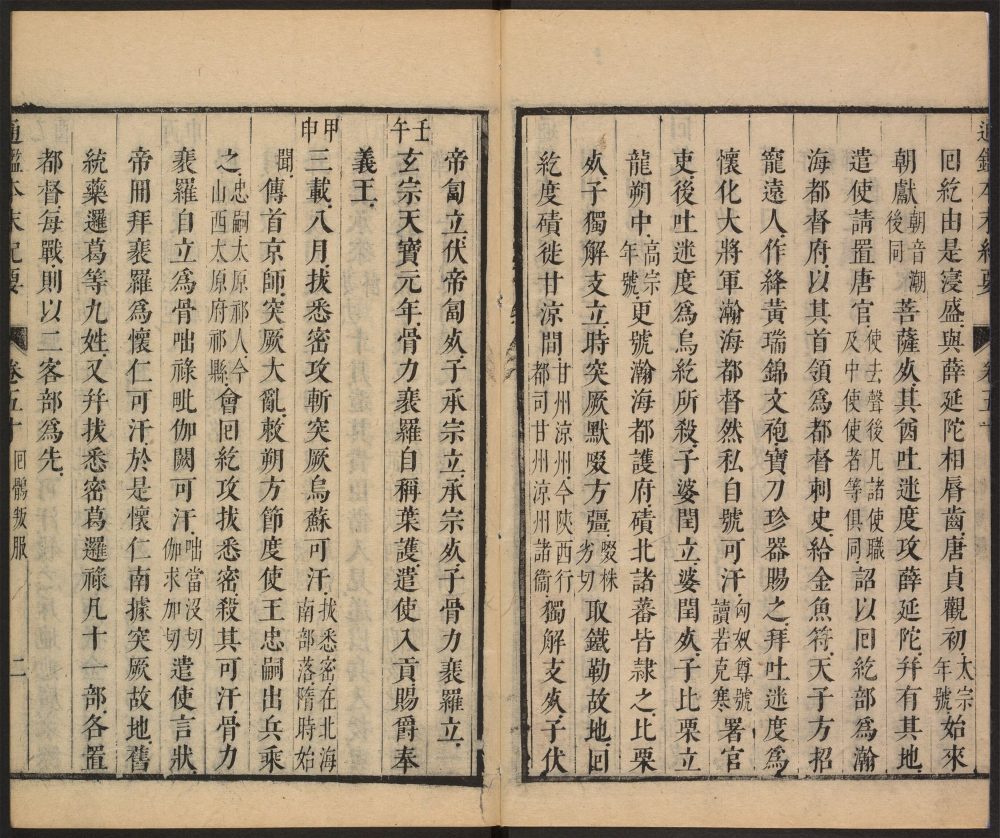 通鑑本末紀要
卷五十
囘紇由是寖盛與薛延陀相唇齒唐貞觀初太宗年號始來
朝獻朝音潮後同菩薩死其酋吐迷度攻薛延陀幷有其地
遣使請置唐官使去聲後凡諸使職及中使使者等俱同詔以囘紇部爲瀚
海都督府以其首領爲都督刺史給金魚符天子方招
寵遠人作絳黃瑞錦文袍寶刀珍器賜之拜吐迷度爲
懷化大將軍瀚海都督然私自號可汗匈奴尊號讀若克寒署官
吏後吐迷度爲烏紇所殺子婆閏立婆閏死子比栗立
龍朔中高宗年號更號瀚海都護府磧北諸蕃皆隸之比栗
死子獨解支立時突厥默啜方彊啜株劣切取鐵勒故地囘
紇度磧徙甘涼間甘州涼州今陝西行都司甘州涼州諸衞獨解支死子伏
帝匐立伏帝匐死子承宗立承宗死子骨力裵羅立
壬午
玄宗天寶元年骨力裵羅自稱葉護遣使入貢賜爵奉
義王
甲申
三載八月拔悉密攻斬突厥烏蘇可汗拔悉密在北海南部落隋時始
聞傳首京師突厥大亂敕朔方節度使王忠嗣出兵乘
之忠嗣太原祁人今山西太原府祁縣會囘紇攻拔悉密殺其可汗骨力
裵羅自立爲骨咄祿毗伽闕可汗咄當沒切伽求加切遣使言狀
帝冊拜裵羅爲懷仁可汗於是懷仁南據突厥故地舊
統藥邏葛等九姓又幷拔悉密葛邏祿凡十一部各置
都督每戰則以二客部爲先
通鑑本末紀要
卷五十
囘鶻叛服
二